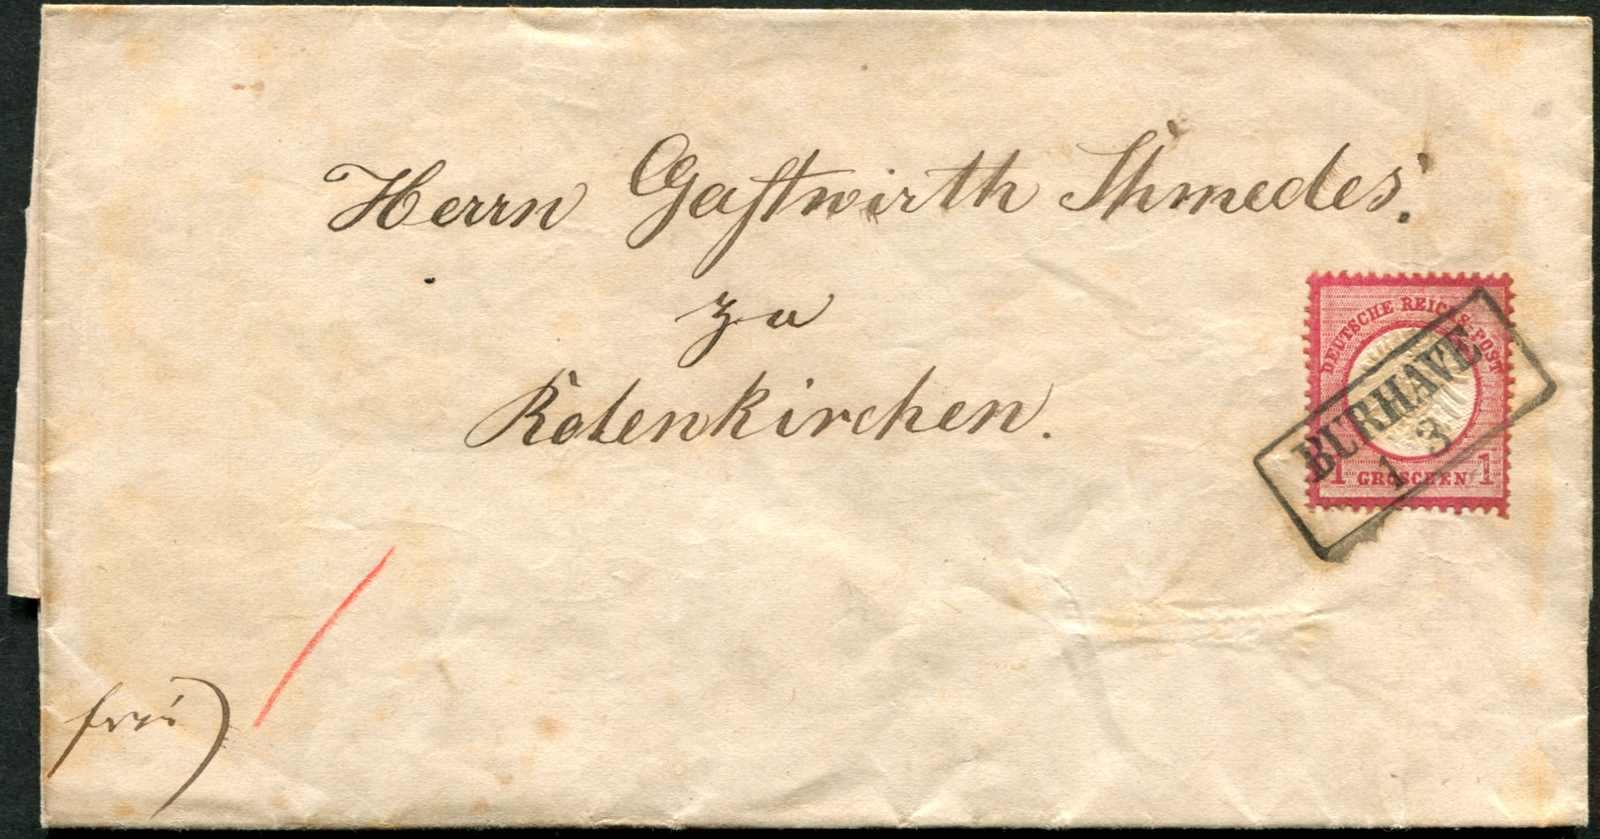 Herrn Gastwirth Thmedes.
zu
Rotenkirchen.
DEUTSCHE REICHS-POST
BURHAVE
1 3
1 GROSCHEN 1
frei